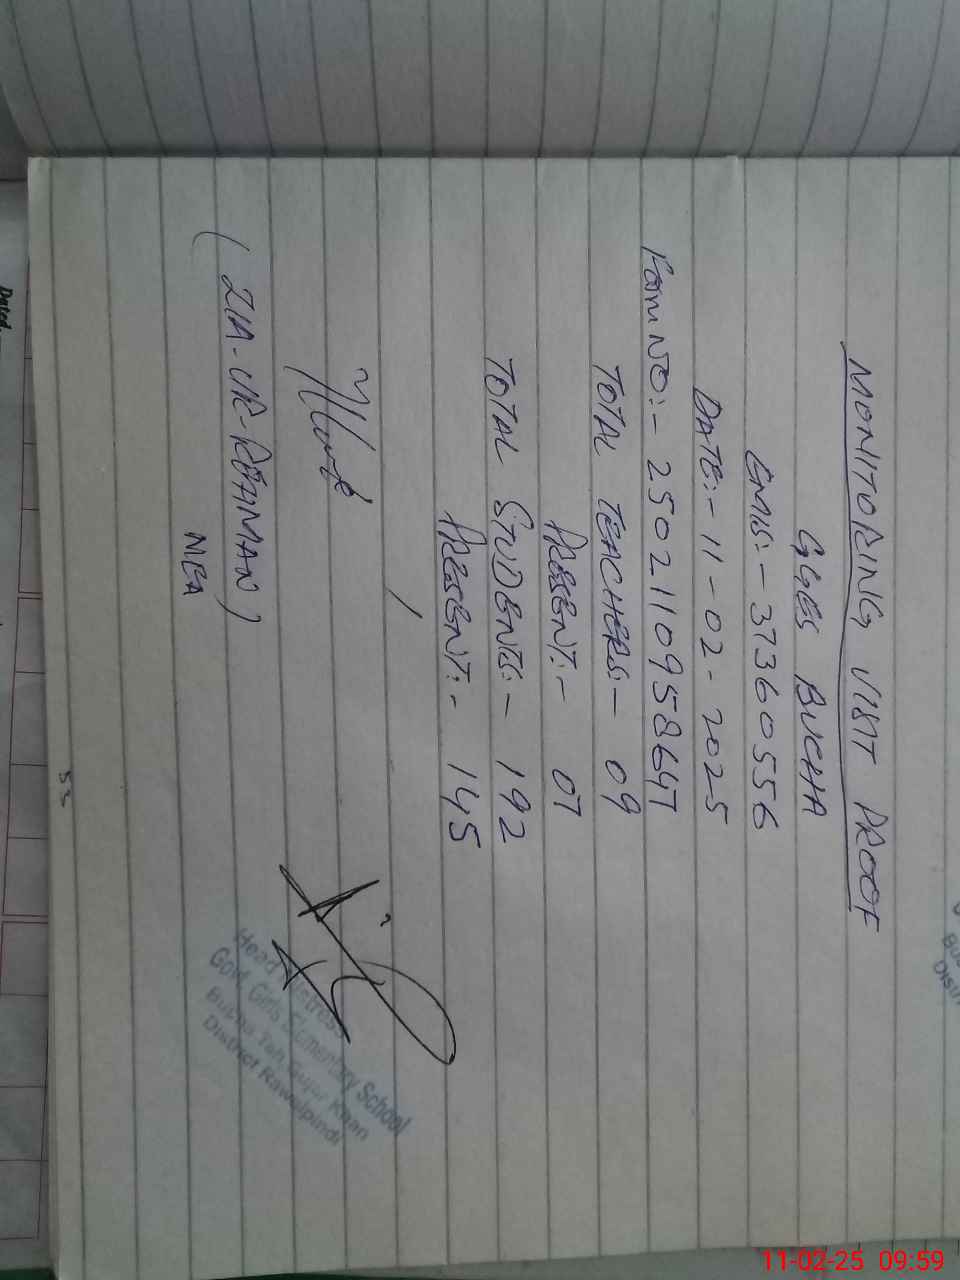 MONITORING VISIT PROOF
GGES BUCHA
EMIS:- 37360556
DATE:- 11-02-2025
Form NO:- 2502110958647
TOTAL TEACHERS:- 09
PRESENT:- 07
TOTAL STUDENTS:- 192
PRESENT:- 145
(ZIA-UR-REHMAN)
MEA
Head Mistress
Govt. Girls Elementary School
Bucha Teh. Gujar Khan
District Rawalpindi
53
Dated.
11-02-25 09:59